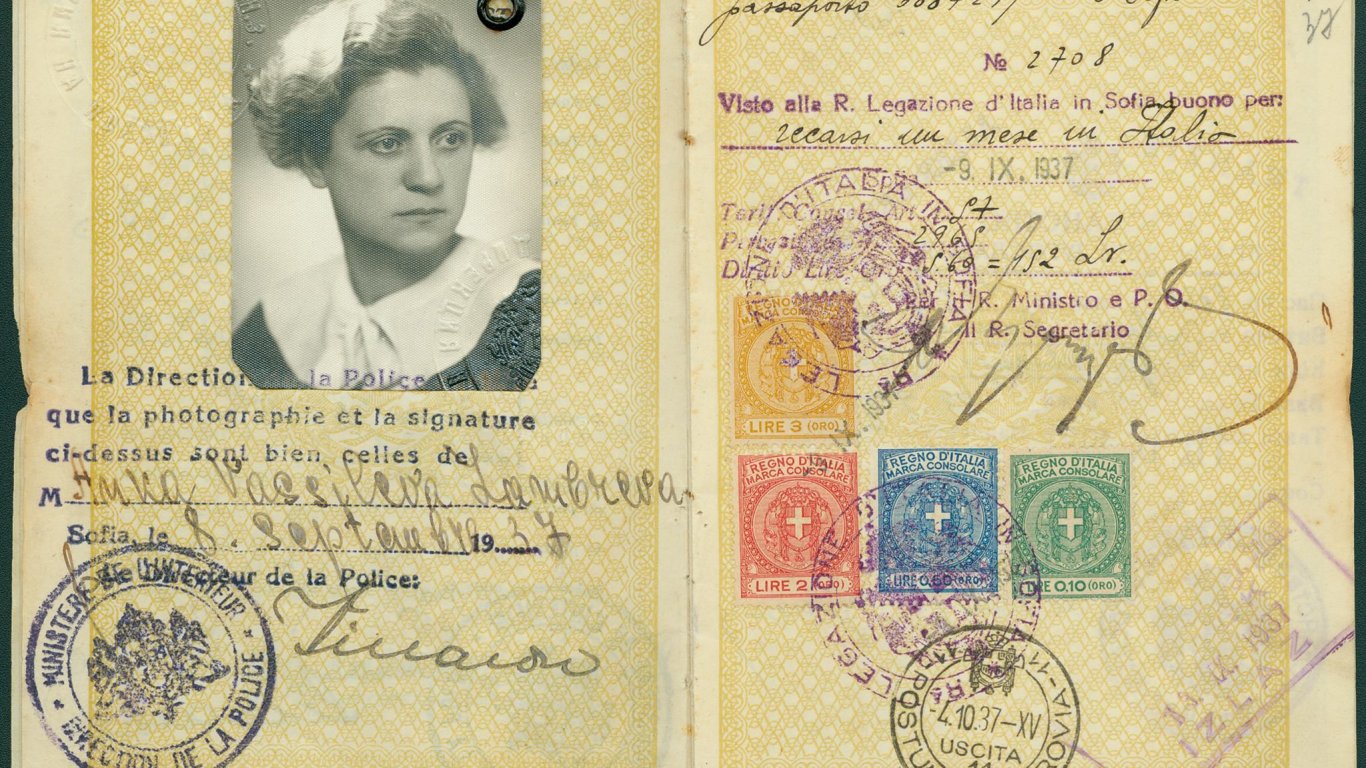 La Direction la Police
que la photographie et la signature
ci-dessus sont bien celles de
M Anka Vassileva Lambreva
Sofia, le 8. Septembre 1937
Le Directeur de la Police:
MINISTÈRE DE L'INTERIEUR
DIRECTION DE LA POLICE
passaporto
37
№ 2708
Visto alla R. Legazione d'Italia in Sofia buono per:
recarsi un mese in Italia
-9. IX. 1937
Tariff. Consol. Art. 57
2965
Diritto Lire Oro 5.60 = 152 Lv.
Per il R. Ministro e P. O.
Il R. Segretario
REGNO D'ITALIA
MARCA CONSOLARE
LIRE 3 (ORO)
REGNO D'ITALIA
MARCA CONSOLARE
LIRE 2 (ORO)
REGNO D'ITALIA
MARCA CONSOLARE
LIRE 0,50 (ORO)
REGNO D'ITALIA
MARCA CONSOLARE
LIRE 0,10 (ORO)
-4.10.37-XV
USCITA
11
11. IX. 1937